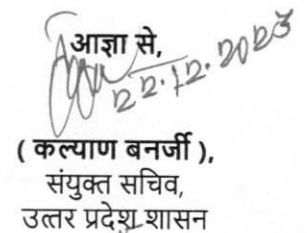 आज्ञा से,
22.12.2023
( कल्याण बनर्जी ),
संयुक्त सचिव,
उत्तर प्रदेश शासन